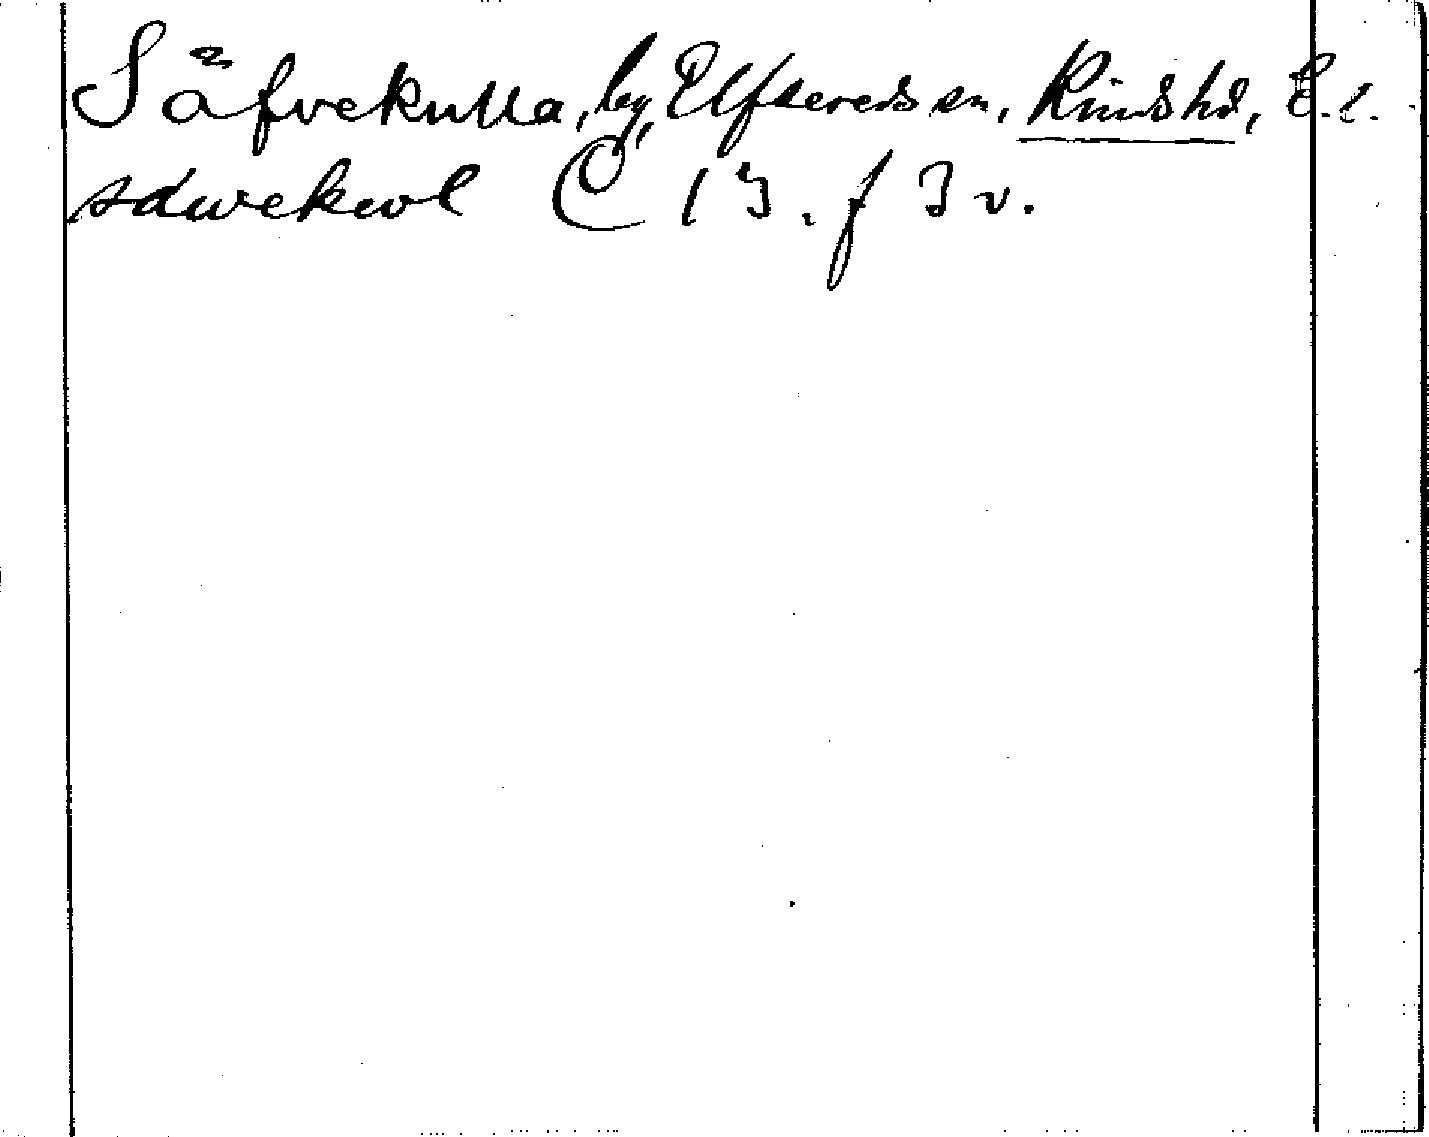 Säfvekulla, by, Elfsereds sn, Kinds hd, E.l.
sdwekwl C 13. f 3 v.